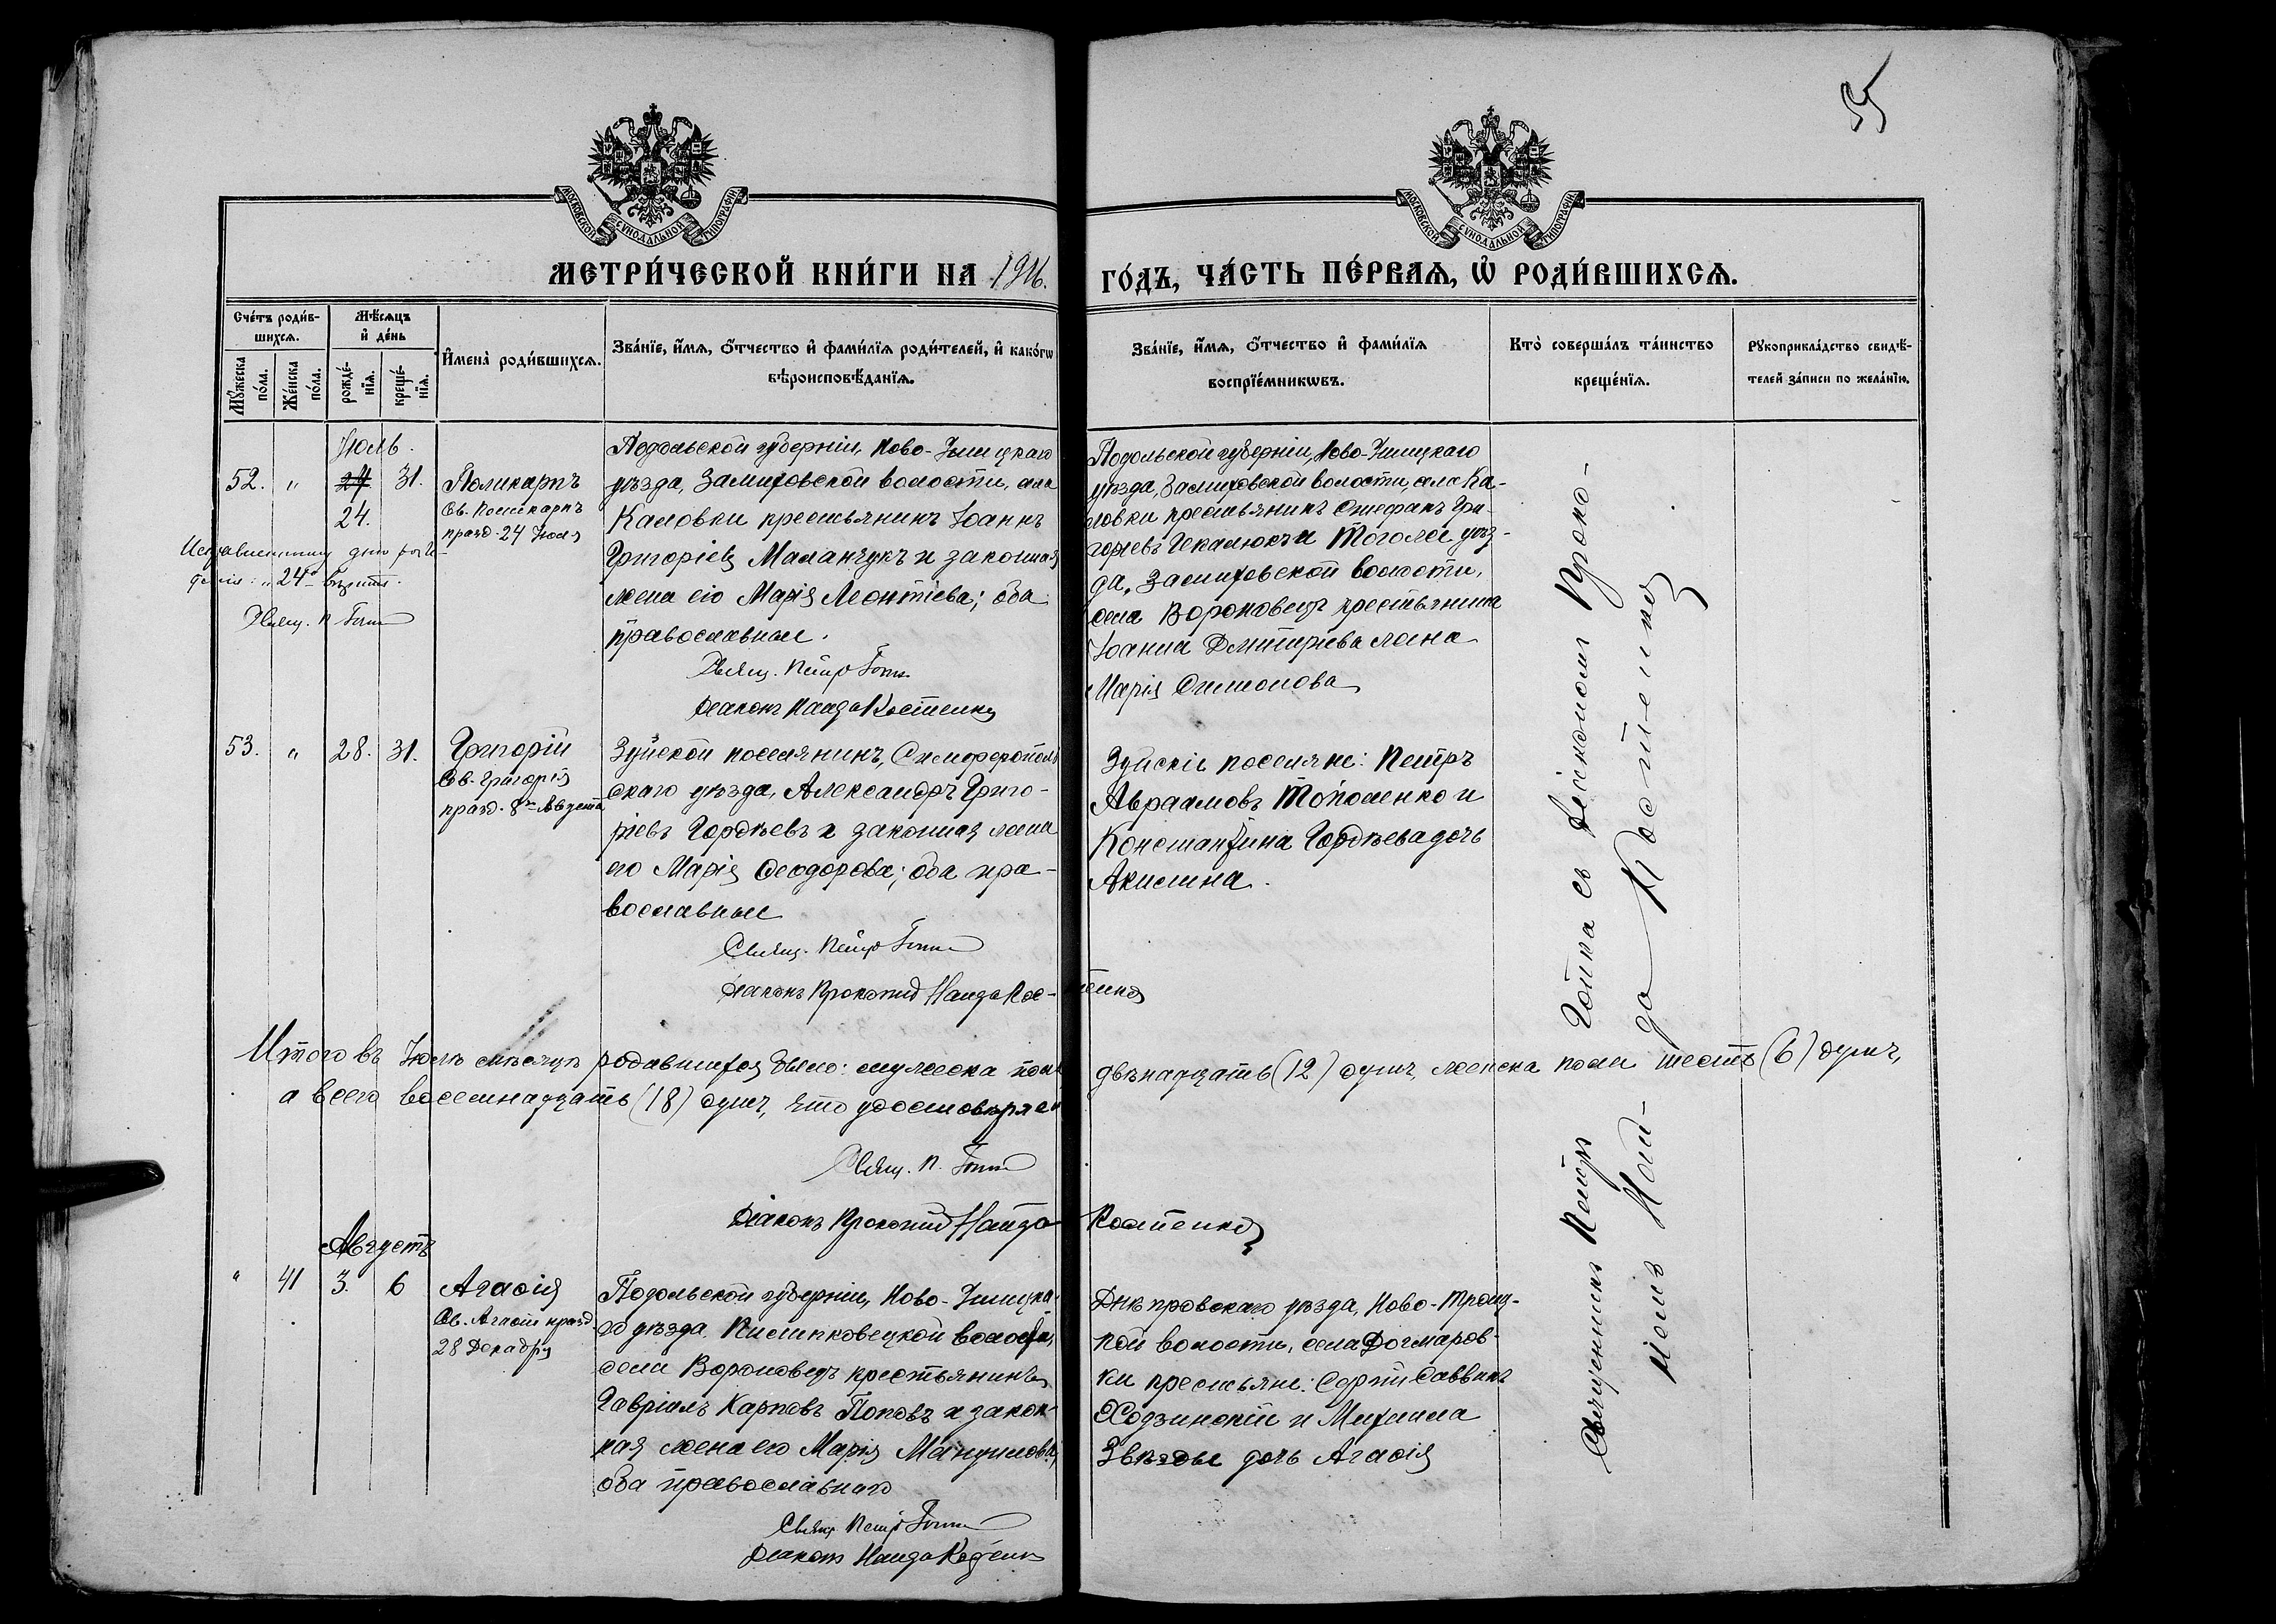 55
МОСКОВСКОЙ СУНОДАЛЬНОЙ ТИПОГРАФІИ.
МОСКОВСКОЙ СУНОДАЛЬНОЙ ТИПОГРАФІИ.
МЕТРИ́ЧЕСКОЙ КНИ́ГИ НА 1916. ГО́ДЪ, ЧА́СТЬ ПЕ́РВАЯ, Ѡ҆ РОДИ́ВШИХСЯ.
Сче́тъ роди́в-
шихся.
Мꙋжеска
по́ла.
Же́нска
по́ла.
Мѣ́сяцъ
и҆ де́нь
рожде́-
нїя.
креще́-
нїя.
И҆мена̀ роди́вшихся.
Зва́нїе, и҆́мя, ѻ҆́тчество и҆ фами́лїя роди́телей, и҆ како́гѡ
вѣроисповѣ́данїя.
Зва́нїе, и҆́мя, ѻ҆́тчество и҆ фами́лїя
воспрїе́мникѡвъ.
Кто̀ соверша́лъ та́инство
креще́нїя.
Рꙋкоприкла́дство свидѣ́-
телей за́писи по жела́нїю.
Іюль.
52. " 24 31.
24.
Поликарпъ
Св. Поликарпъ
празд. 24 Іюля
Исправленному дню рож-
денія: "24" вѣрить.
Свящ. П.
Подольской губерніи, Ново-Ушицкаго
уѣзда, Замиховской волости, села
Каловки крестьянинъ Іоаннъ
Григоріевъ Маланчукъ и законная
жена его Марія Леонтіева; оба
православные.
Свящ. Петръ
Діаконъ Найда Костенко
Подольской губерніи, Ново-Ушицкаго
уѣзда, Замиховской волости, села Ка-
ловки крестьянинъ Стефанъ Гри-
горьевъ и того же уѣз-
да, Замиховской волости,
села Вороновецъ крестьянина
Іоанна Дмитріева жена
Марія Симонова
53. " 28. 31.
Григорій
Св. Григорія
празд. 8го Августа
Зуйской поселянинъ, Симферополь
скаго уѣзда, Александръ Григо-
ріевъ Гордѣевъ и законная жена
его Марія Ѳеодорова; оба пра-
вославные
Свящ. Петръ
Діаконъ Прокопій Найда Кос-тенко
Зуйскіе поселяне: Петръ
Авраамовъ Тополенко и
Константина Гордѣева дочь
Акилина.
Итого въ Іюлѣ мѣсяцѣ родившихся было: мужеска пола двѣнадцать (12) душъ, женска пола шесть (6) душъ,
а всего восемнадцать (18) душъ, что удостовѣряем
Свящ. П.
Діаконъ Прокопій Найда Костенко
Августъ
" 41 3. 6
Агаѳія
Св. Агаѳіи празд.
28 Декабря
Подольской губерніи, Ново-Ушицка-
го уѣзда. волости,
села Вороновецъ крестьянинъ
Гавріилъ Карповъ Поповъ и закон-
ная жена его Марія
оба православнаго
Свящ. Петръ
Діаконъ Найда Костенко
Днѣпровскаго уѣзда, Ново-Троиц-
кой волости, села Догмаров-
ки крестьяне: Сергій Саввинъ
Ходзинскій и Михаила
Звѣзды дочь Агаѳія
Священникъ Петръ съ діакономъ Проко-
піемъ Най-да Костенко